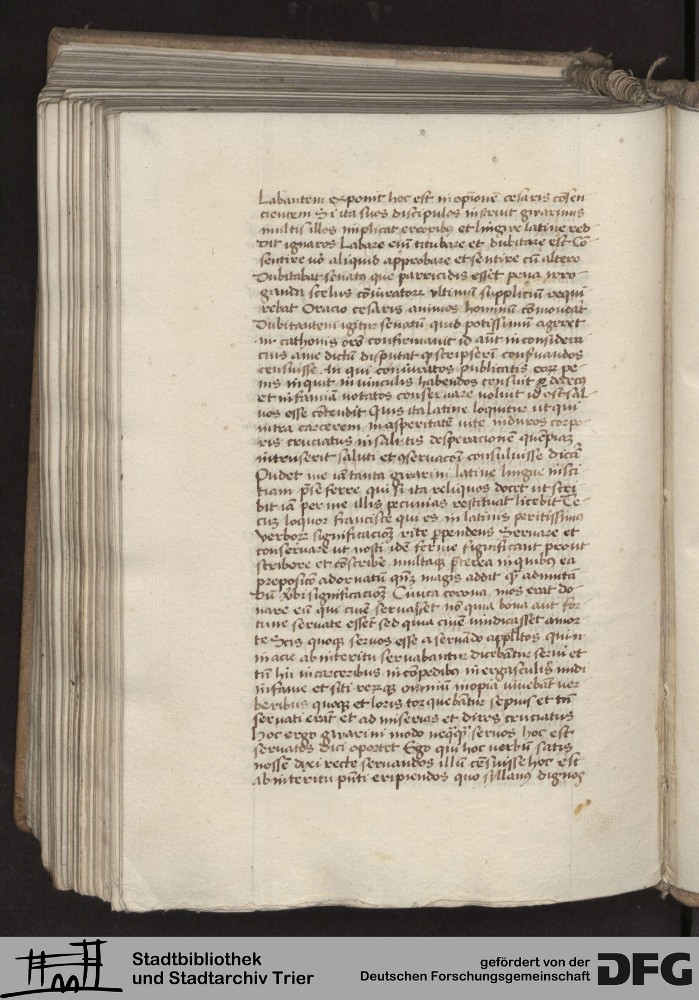 Labantem exponit hoc est in opionē cesaris cōsen
cientem Si ita suos discipulos instruit girarinus
multis illos implicat erroribus et lingue latine red
dit ignaros Labare eni titubare et dubitare est Co
sentire vō aliquid approbare et sentire cū altero
Dubitabat senatus que parricidis esset pena irro
ganda scelus coniuratorꝝ vltimū suppliciū requi
rebat Oracio cesaris animos hominū cōmouerat
Dubitantem igitur senatū quid potissimū ageret
m cathonis orō confirmauit id aūt in considera
cius ame dictū disputat ꝙ scripserī confuandos
censuisse An qui coniuratos publicatis eorꝝ pe
niis inquit in vinculis habendos censuit ꝑ dedecus
et infamiā notatos conseruare voluit id est sal
uos esse cōtendit Quis ita latine loquitur ut qui
intra carcerem in asperitatē vite in duros corpo
ris cruciatus in salutis desperacionem quēpiaꝫ
intruserit saluti et ꝯseruacōi consuluisse dicā
Pudet me iā tanta girarini latine lingue insci
tiam p̄se ferre qui si ita reliquos docet ut scri
bit iā per me illis pecunias restituat licebit Te
cuꝫ loquor francisce qui es in latinis peritissimus
verborꝝ significacioēꝫ rite ꝑpendens Seruare et
conseruare ut nosti idē ferme significant prout
scribere et cōscribē multaqꝫ p̄terea in quibus ea
preposicō adornatū qn̄qꝫ magis addit qꝫ admuta
dū v̄bi significacioēꝫ Ciuica corona mos erat do
nare eū qui ciuē seruasset nō quia bona aut for
tune seruate essēt sed quia ciuē vindicasset a mor
te Scis quoqꝫ seruos esse a seruādo app̄llatos qui in
in acie ab interitu seruabantur dicebātur serui et
tn̄ hii in carceribus in cōpedibus in ergasculis nudi
in fame et siti rerūqꝫ omniū inopia viuebāt ver
beribus quoqꝫ et loris torquebātur sepius et tn̄
seruati erāt et ad miserias et diros cruciatus
hoc ergo girarini modo neqꝫqꝫ seruos hoc est
seruatos dici oportet Ego qui hoc verbū satis
nossē dixi recte seruandos illū cēsuisse hoc est
ab interitu pn̄ti eripiendos quo syllanus dignos
Stadtbibliothek
und Stadtarchiv Trier
gefördert von der
Deutschen Forschungsgemeinschaft
DFG